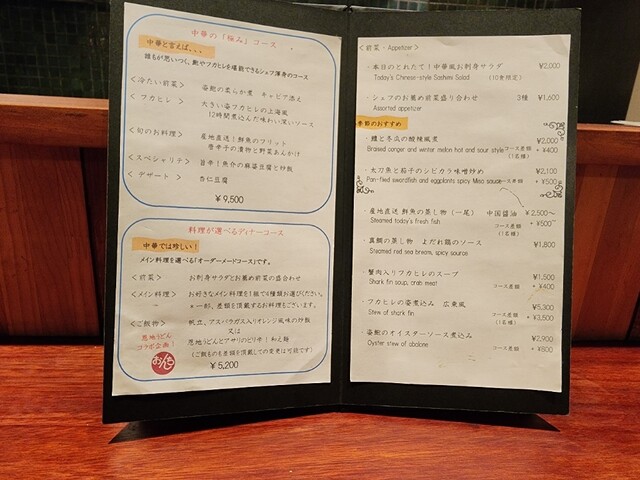 中華の「極み」コース
中華と言えば、、、
誰もが思いつく、鮑やフカヒレを堪能できるシェフ渾身のコース
<冷たい前菜> 姿鮑の柔らか煮 キャビア添え
<フカヒレ> 大きい姿フカヒレの上海風
12時間煮込んだ味わい深いソース
<旬のお料理> 産地直送!鮮魚のフリット
唐辛子の漬物と野菜あんかけ
<スペシャリテ> 旨辛!魚介の麻婆豆腐と炒飯
<デザート> 杏仁豆腐
¥9,500
料理が選べるディナーコース
中華では珍しい!
メイン料理を選べる「オーダーメードコース」です。
<前菜> お刺身サラダとお薦め前菜の盛合わせ
<メイン料理> お好きなメイン料理を1組で4種類お選びください。
※一部、差額を頂戴するお料理をございます。
<ご飯物> 帆立、アスパラガス入りオレンジ風味の炒飯
又は
恩地うどんとアサリのピリ辛!和え麺
(ご飯ものも差額を頂戴しての変更は可能です)
恩地うどん
コラボ企画!
おんち
¥5,200
<前菜・Appetizer>
・本日のとれたて!中華風お刺身サラダ ¥2,000
Today's Chinese-style Sashimi Salad (10食限定)
・シェフのお薦め前菜盛り合わせ 3種 ¥1,600
Assorted appetizer
季節のおすすめ
・鱧と冬瓜の酸辣風煮 ¥2,000
Braised conger and winter melon hot and sour style コース差額 + ¥400
(1名様)
・太刀魚と茄子のシビカラ味噌炒め ¥2,100
Pan-fied swordfish and eggplants spicy Miso sauce コース差額 + ¥500
(1名様)
・産地直送 鮮魚の蒸し物 (一尾) 中国醤油 ¥2,500~
Steamed today's fresh fish コース差額 + ¥500~
(1名様)
・真鯛の蒸し物 よだれ鶏のソース ¥1,800
Steamed red sea bream, spicy source
・蟹肉入りフカヒレのスープ ¥1,500
Shark fin soup, crab meat コース差額 + ¥400
・フカヒレの姿煮込み 広東風 ¥5,300
Stew of shark fin コース差額 + ¥3,500
(1名様)
・姿鮑のオイスターソース煮込み ¥2,900
Oyster stew of abalone コース差額 + ¥600